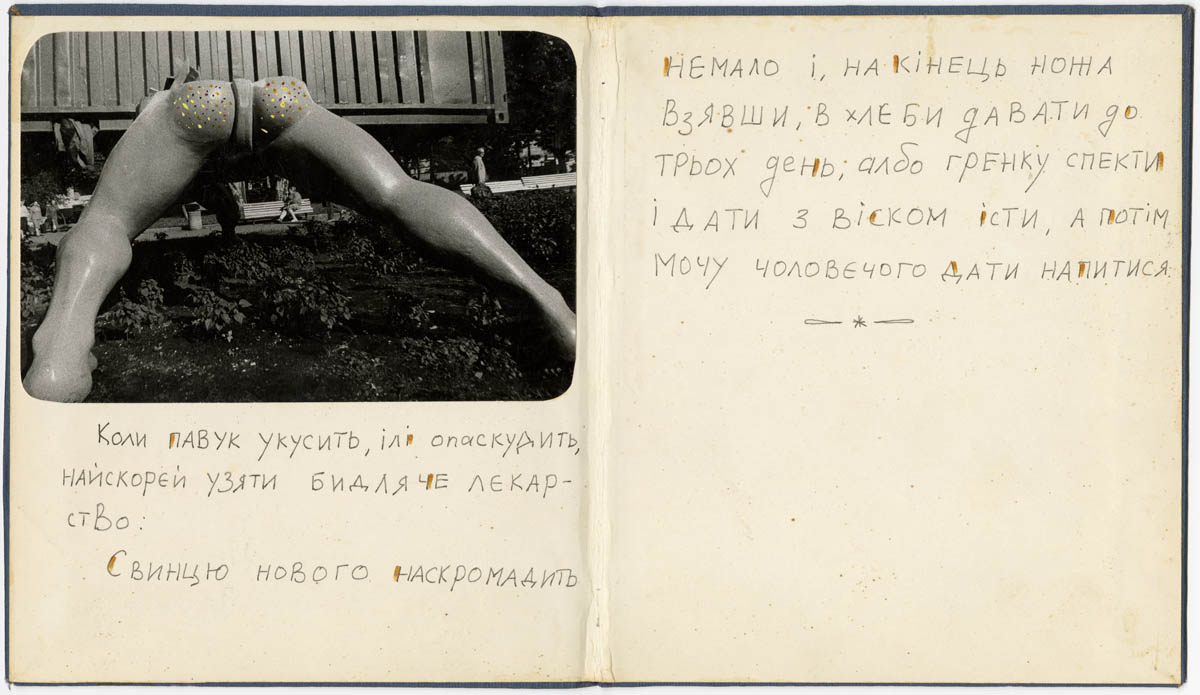 Коли павук укусить, ілі опаскудить,
найскорєй узяти бидляче лєкар-
ство:
Свинцю нового наскромадить
немало і, на кінець ножа
взявши, в хлєби давати до
трьох день; албо грєнку спекти
і дати з вієком їсти, а потім
мочу чоловєчого дати напитися.